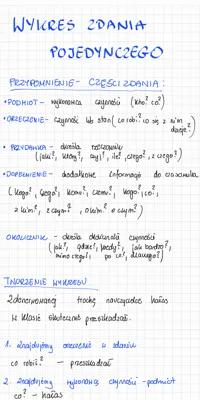 WYKRES ZDANIA
POJEDYNCZEGO
PRZYPOMNIENIE - CZĘŚCI ZDANIA:
• PODMIOT - wykonawca czynności (kto? co?)
• ORZECZENIE - czynność lub stan (co robi? co się z nim
dzieje?)
• PRZYDAWKA - określa rzeczownik
(jaki?, który?, czyj?, ile?, czego?, z czego?)
• DOPEŁNIENIE - dodatkowe informacje do czasownika
(kogo?, czego?, komu?, czemu?, kogo?, co?,
z kim?, z czym?, o kim? o czym?)
OKOLICZNIK - określa okoliczności czynności
(jak?, gdzie?, kiedy?, jak bardzo?,
mimo czego?, po co?, dlaczego?)
TWORZENIE WYKRESU
Zdenerwowaną trochę nauczycielkę hałas
w klasie skutecznie przeszkadzał.
1. znajdujemy orzeczenie w zdaniu
co robił? - przeszkadzał
2. znajdujemy wykonawcę czynności - podmiot
co? - hałas